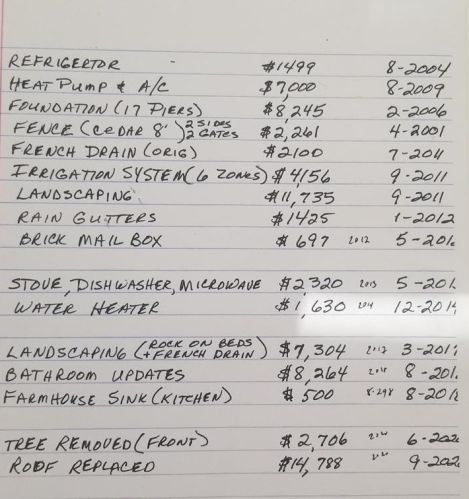 REFRIGERTOR $1499 8-2004
HEAT PUMP & A/C $7,000 8-2009
FOUNDATION (17 PIERS) $8,245 2-2006
FENCE (CEDAR 8') 2 SIDES 2 GATES $2,261 4-2001
FRENCH DRAIN (ORIG) $2100 7-2011
IRRIGATION SYSTEM (6 ZONES) $4,156 9-2011
LANDSCAPING $11,735 9-2011
RAIN GUTTERS $1425 1-2012
BRICK MAIL BOX $697 2012 5-201
STOVE, DISHWASHER, MICROWAVE $2,320 5-201
WATER HEATER $1,630 12-201
LANDSCAPING (ROCK ON BEDS + FRENCH DRAIN) $7,304 3-201
BATHROOM UPDATES $8,264 8-201
FARMHOUSE SINK (KITCHEN) $500 8-201
TREE REMOVED (FRONT) $2,706 6-202
ROOF REPLACED $14,788 9-202